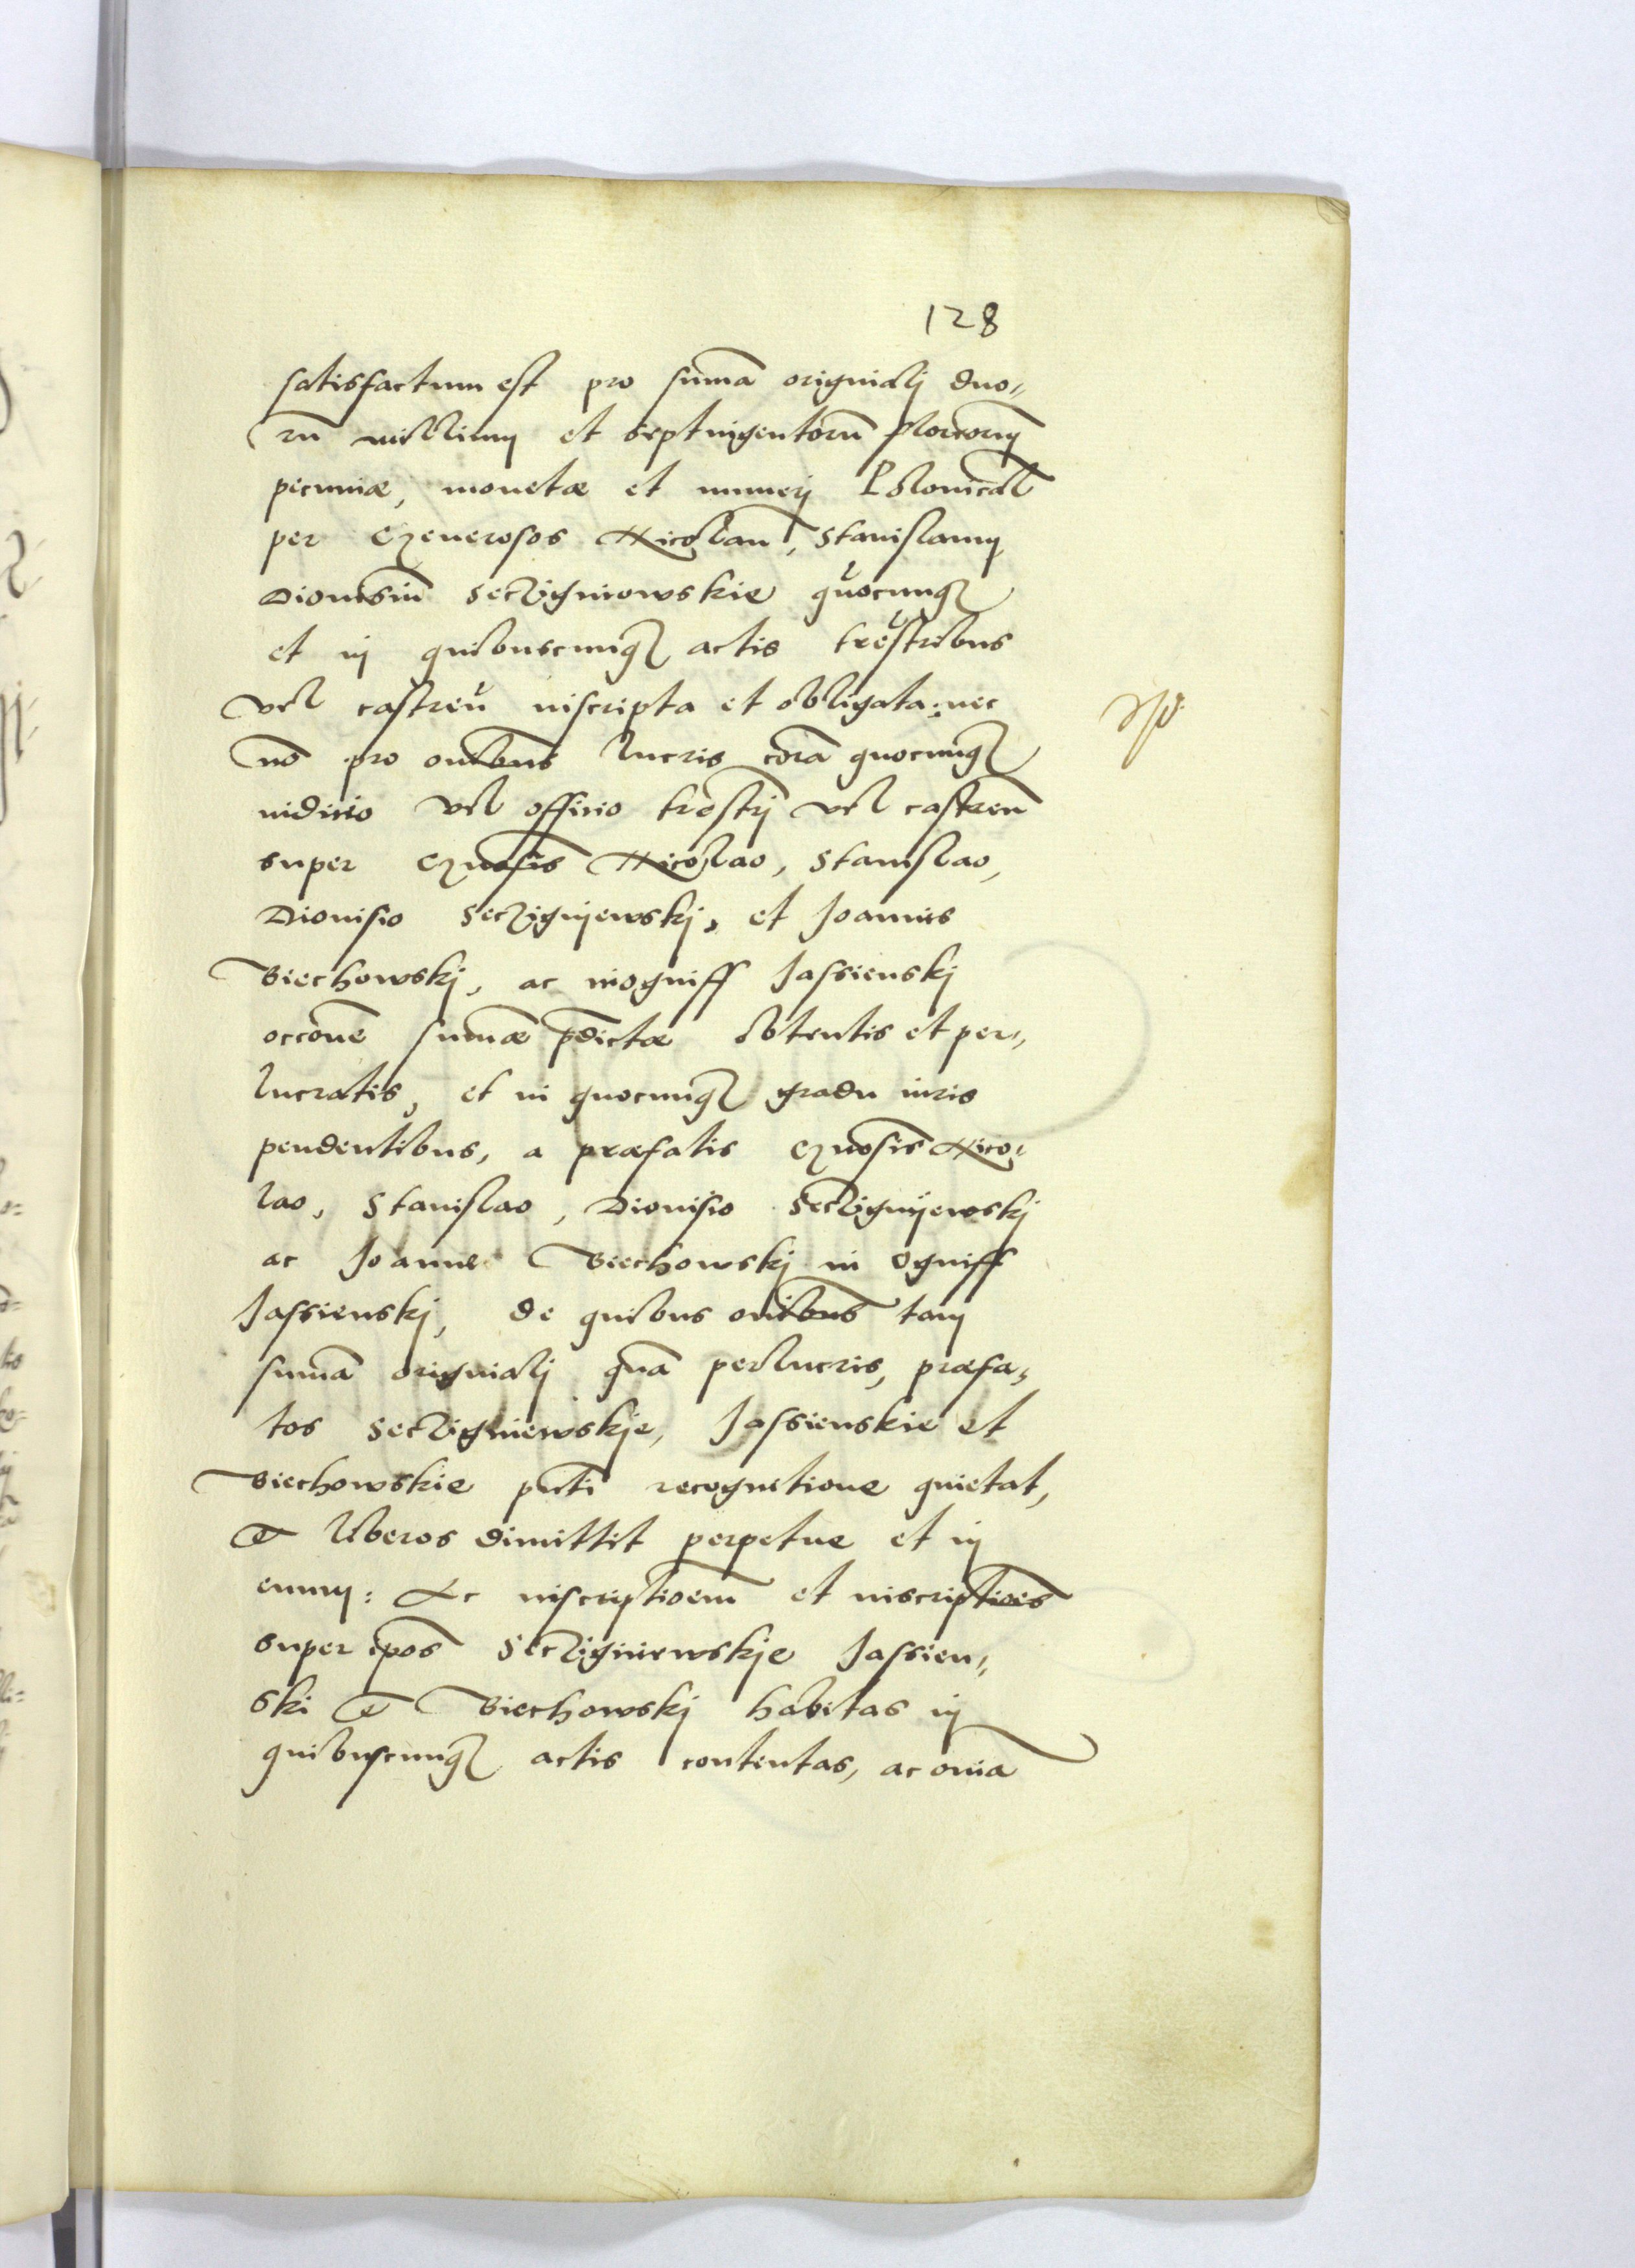 128
satisfactum est pro sum̄a originalj duo„
rū millium et septuigentorū florenorum
pecuniæ, monetæ et numeri Polonical
per Generosos Nicolaū, Stanislaum
Dionisiū Seczigniowskie quocunq₃
et in quibuscunq₃ actis tr̄estribus
vel castreň inscripta et obligata: nec
nō pro om̄ibus lucris corā quocunq₃
iudicio vel officio tr̄estrj vel castreň
super Gn̄osis Nicolao, Stanislao,
Dionisio Seczignijewskj, et Joannis
Biechowskj, ac in ogniff Jassienskj
occ̄one sum̄æ p̄dictæ obtentis et per„
lucratis, et in quocunq₃ gradu iuris
pendentibus, a præfatis Gn̄osis Nico„
lao, Stanislao, Dionisio Seczignijewskj
ac Joanne Biechowskj in Ogniff
Jassienskj, de quibus om̄ibus tam
sum̄a originalj quā perlucris, præfa„
tos Seczigniewskje, Jassienskie et
Biechowskie pn̄ti recognitione quietat,
et liberos dimittit perpetue et in
euum: Ac inscriptioem̄ et inscriptioēs
super ip̄os Seczigniewskje Jassien„
ski et Biechowskj habitas in
quibuscunq₃ actis contentas, ac om̄ia